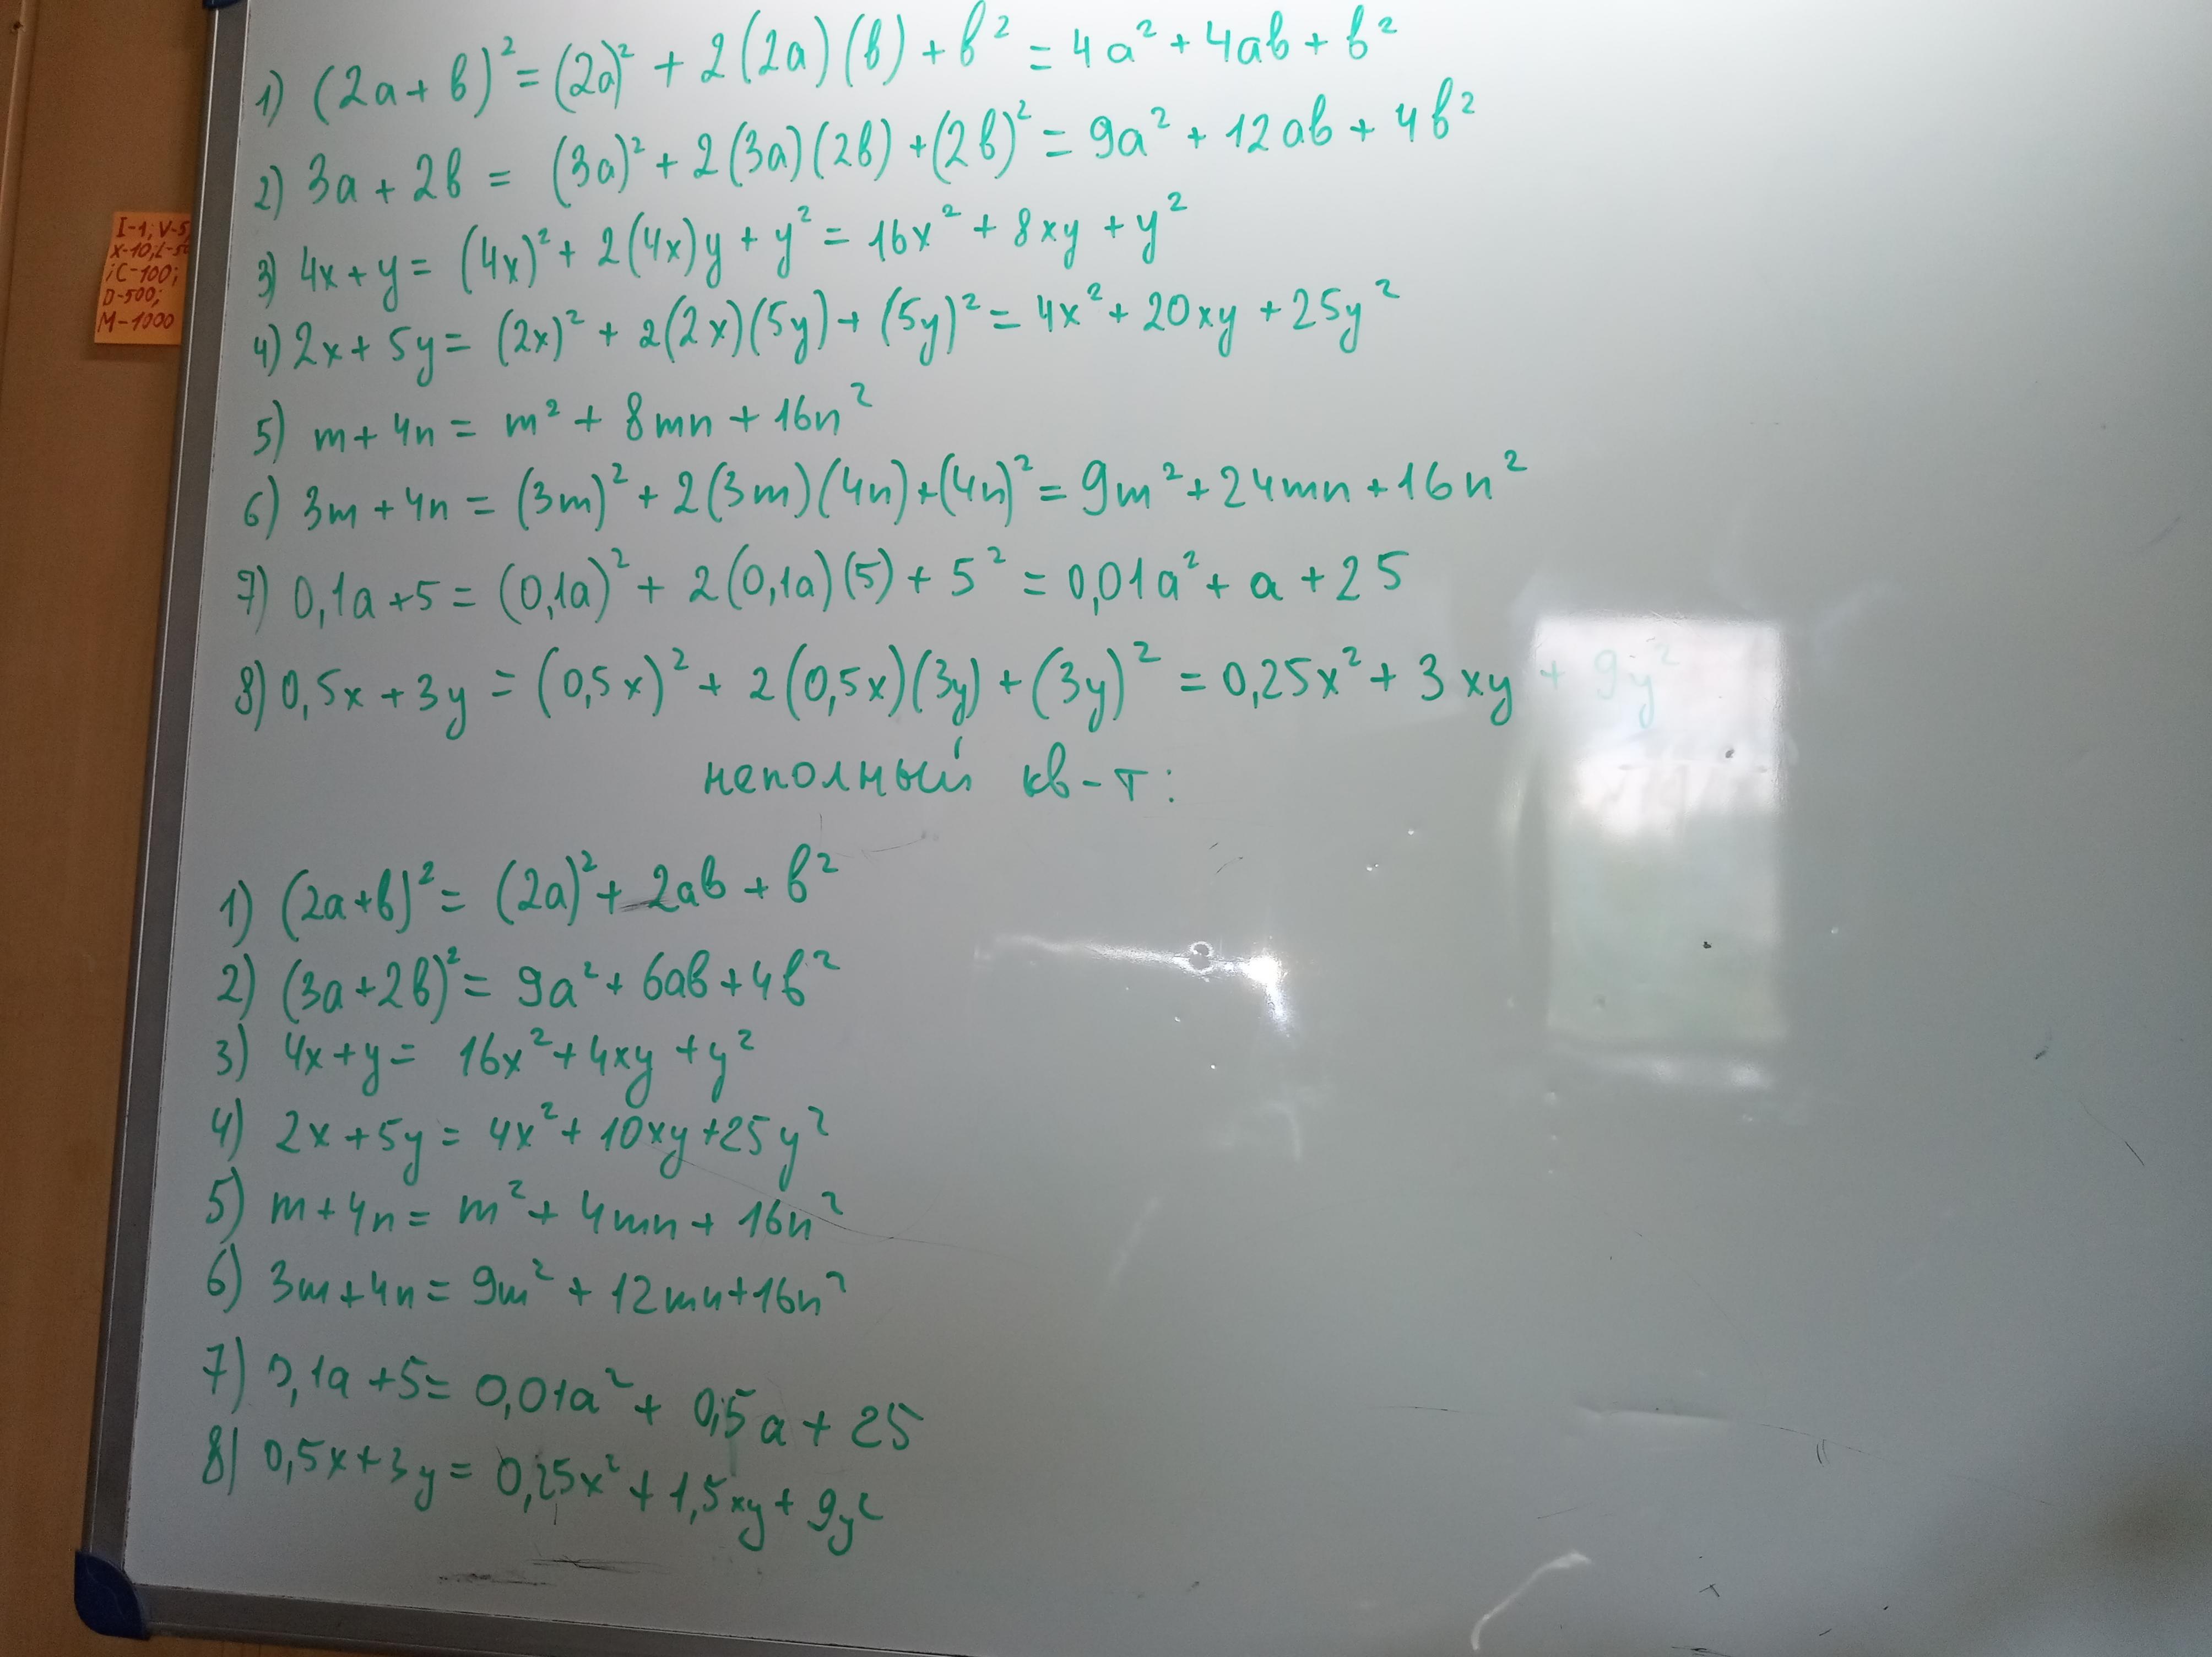 1) (2a+b)² = (2a)² + 2(2a)(b) + b² = 4a² + 4ab + b²
2) 3a + 2b = (3a)² + 2(3a)(2b) + (2b)² = 9a² + 12ab + 4b²
3) 4x + y = (4x)² + 2(4x)y + y² = 16x² + 8xy + y²
4) 2x + 5y = (2x)² + 2(2x)(5y) + (5y)² = 4x² + 20xy + 25y²
5) m + 4n = m² + 8mn + 16n²
6) 3m + 4n = (3m)² + 2(3m)(4n) + (4n)² = 9m² + 24mn + 16n²
7) 0,1a + 5 = (0,1a)² + 2(0,1a)(5) + 5² = 0,01a² + a + 25
8) 0,5x + 3y = (0,5x)² + 2(0,5x)(3y) + (3y)² = 0,25x² + 3xy + 9y²
неполный кв-т:
1) (2a+b)² = (2a)² + 2ab + b²
2) (3a+2b)² = 9a² + 6ab + 4b²
3) 4x + y = 16x² + 4xy + y²
4) 2x + 5y = 4x² + 10xy + 25y²
5) m + 4n = m² + 4mn + 16n²
6) 3m + 4n = 9m² + 12mn + 16n²
7) 0,1a + 5 = 0,01a² + 0,5a + 25
8) 0,5x + 3y = 0,25x² + 1,5xy + 9y²
I-1; V-5
X-10; L-50
; C-100;
D-500;
M-1000